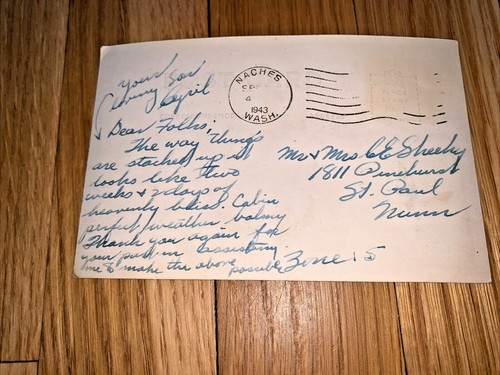 Your
Loving Son
NACHES
SEP
4
1943
WASH.
Dear Folks,
The way things
are stacked up it
looks like two
weeks & 2 days of
heavenly bliss. Cabin
perfect, weather balmy
Thank you again for
your part in assisting
me to make the above possible
Mr & Mrs C E Sheehy
1811 Pinehurst
St. Paul
Minn
Zone 15